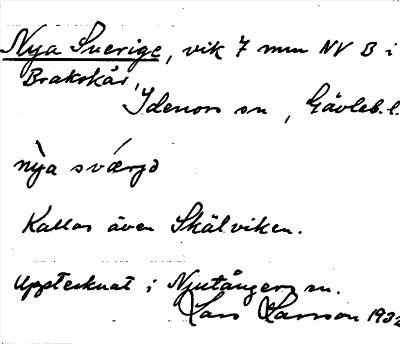 Nya Sverige, vik 7 mm NV B i
Brakskär,
Idenors sn, Gävleb. l.
nỳa sværjə
Kallas även Skälviken.
Upptecknat i Njutångers sn.
Lars Larsson 1932